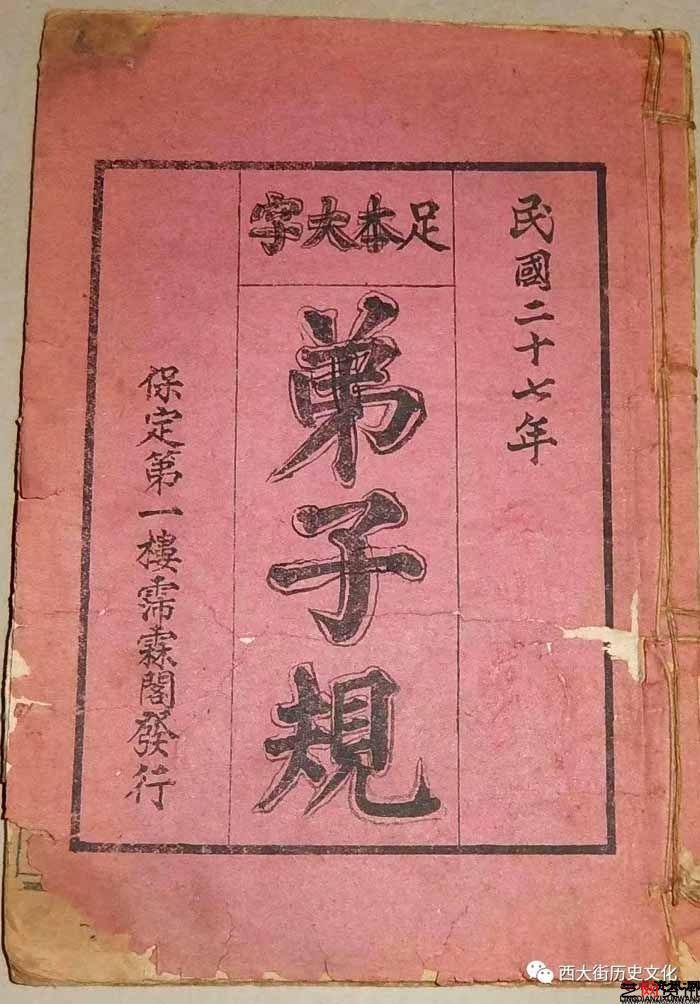 民國二十七年
足本大字
弟子規
保定第一樓霈霖閣發行
西大街历史文化